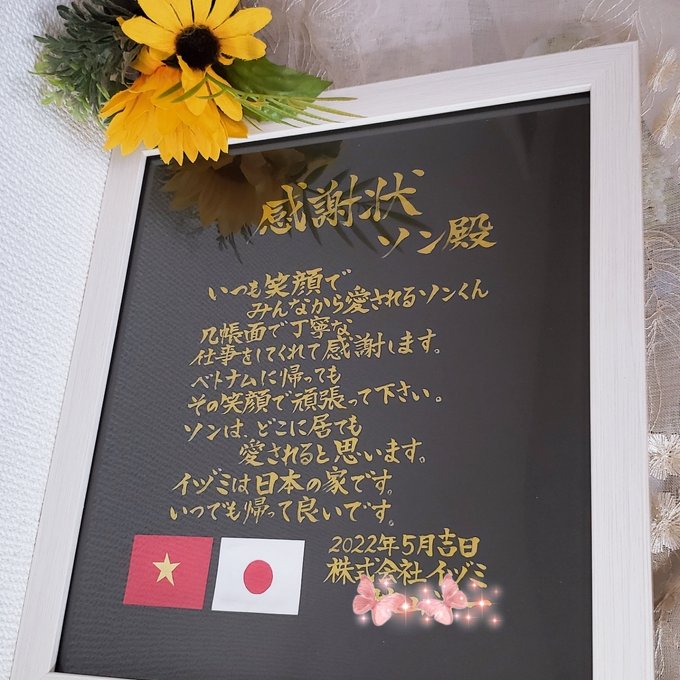 感謝状
ソン殿
いつも笑顔で
みんなから愛されるソンくん
几帳面で丁寧な
仕事をしてくれて感謝します。
ベトナムに帰っても
その笑顔で頑張って下さい。
ソンは、どこに居ても
愛されると思います。
イヅミは日本の家です。
いつでも帰って良いです。
2022年5月吉日
株式会社イヅミ